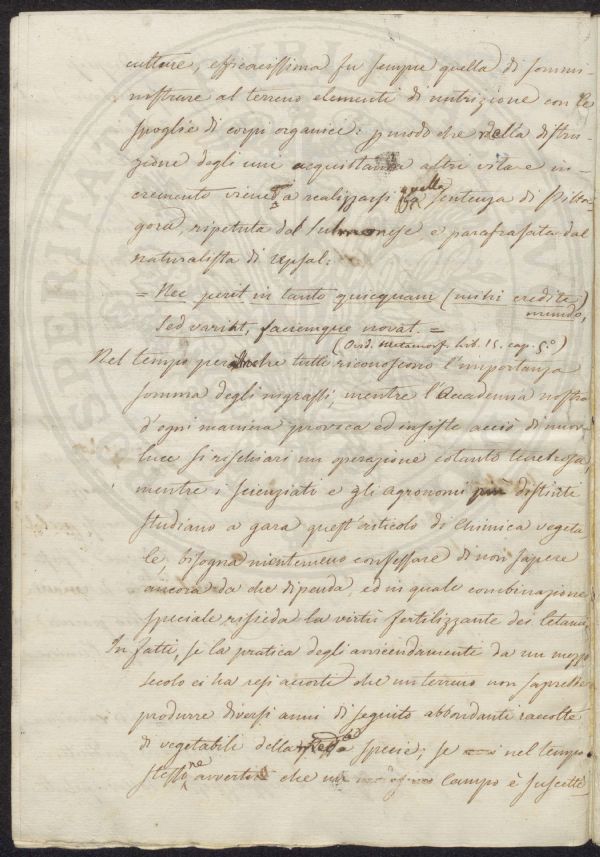 culture, efficacissima fu sempre quella di sommi-
nistrare al terreno elementi di nutrizione con le
spoglie di corpi organici: p modo che della distru-
zione degli uni acquistando altri vita e in-
cremento viene a realizzarsi quella sentenza di Pitta-
gora, ripetuta dal Sulmonese, e parafrasata dal
naturalista di Upsal:
= Nec perit in tanto quicquam (mihi credite)
mundo,
Sed variat, faciemque novat. =
(Ovid. Metamorf. lib. 15. cap. 5.º)
Nel tempo però che tutti riconoscono l'importanza
somma degl'ingrassi, mentre l'Accademia nostra
d'ogni maniera provoca ed insiste acciò di nuova
luce si rischiari un operazione cotanto tenebrosa,
mentre i scienziati e gli agronomi più distinti
studiano a gara quest'articolo di Chimica vegeta-
le, bisogna nientemeno confessare di non sapere
ancora da che dipenda, ed in quale combinazione
speciale risieda la virtù fertilizzante dei letami.
In fatti, se la pratica degli avvicendamenti da un mezzo
secolo ci ha resi accorti che un terreno non saprebbe
produrre diversi anni di seguito abbondanti raccolte
di vegetabili della specie; se nel tempo
stesso ne avvertì che un campo è suscetti-